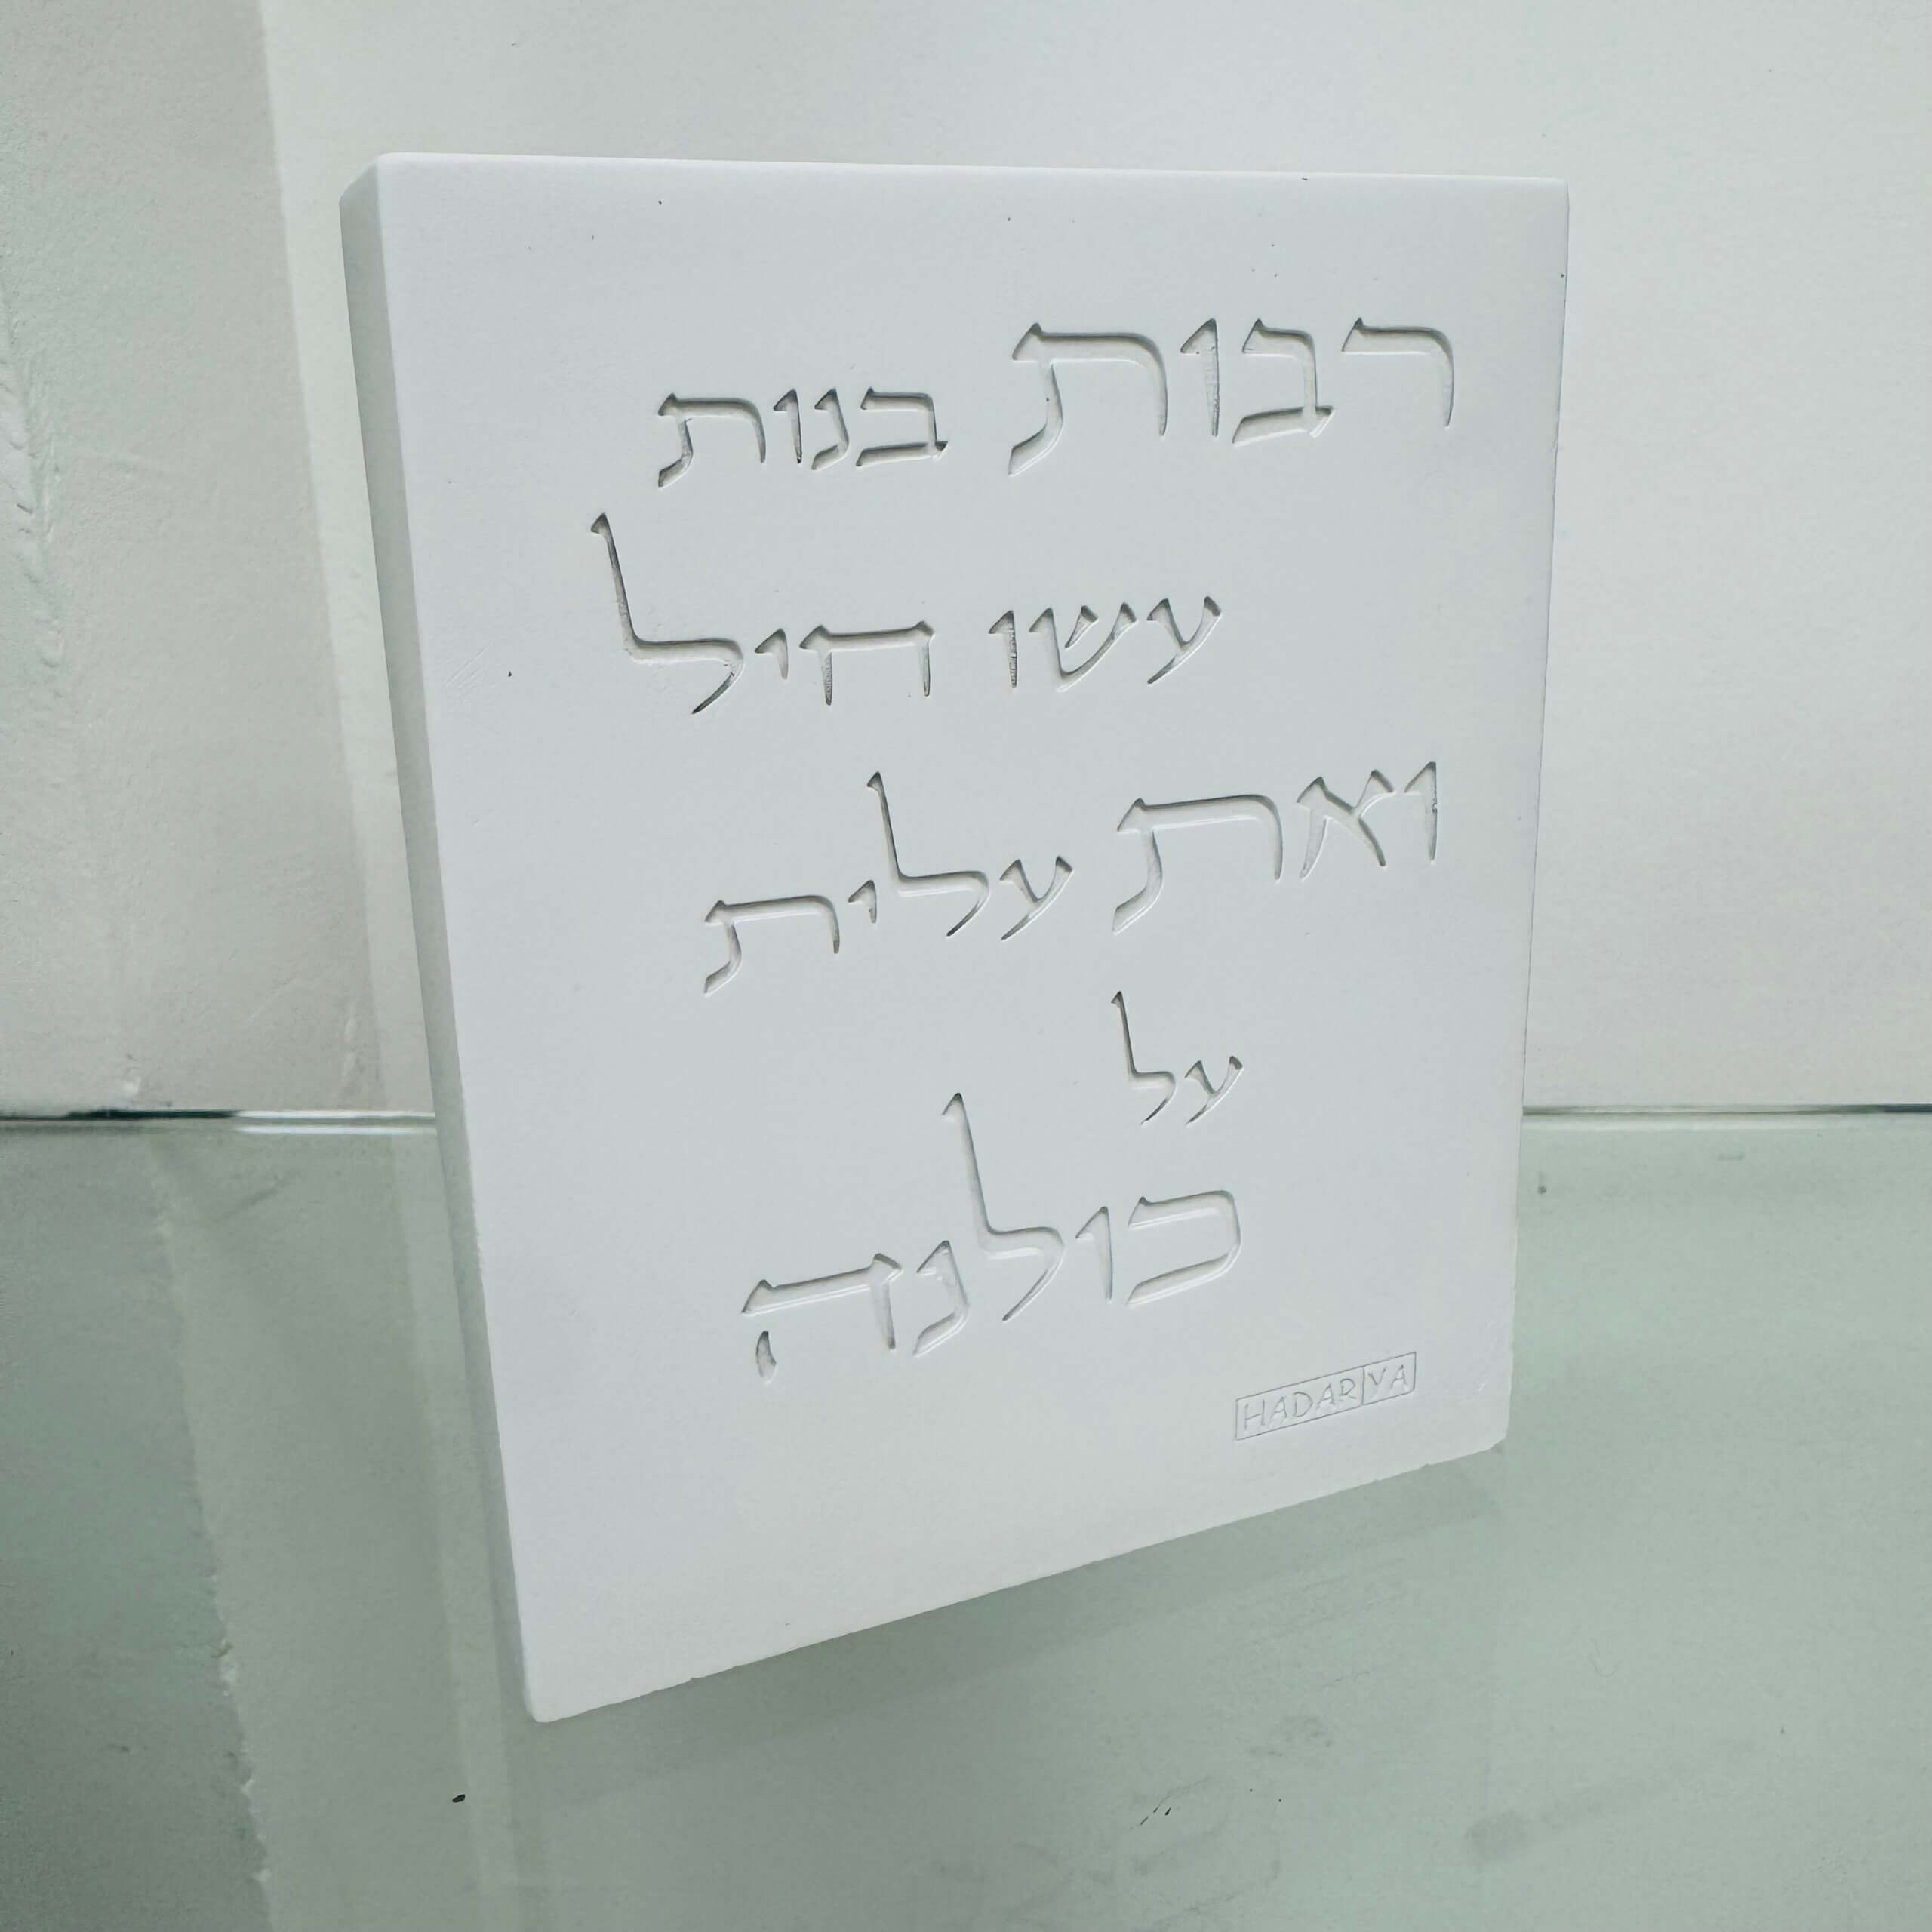 רבות בנות
עשו חיל
ואת עלית
על
כולנה
HADARYA